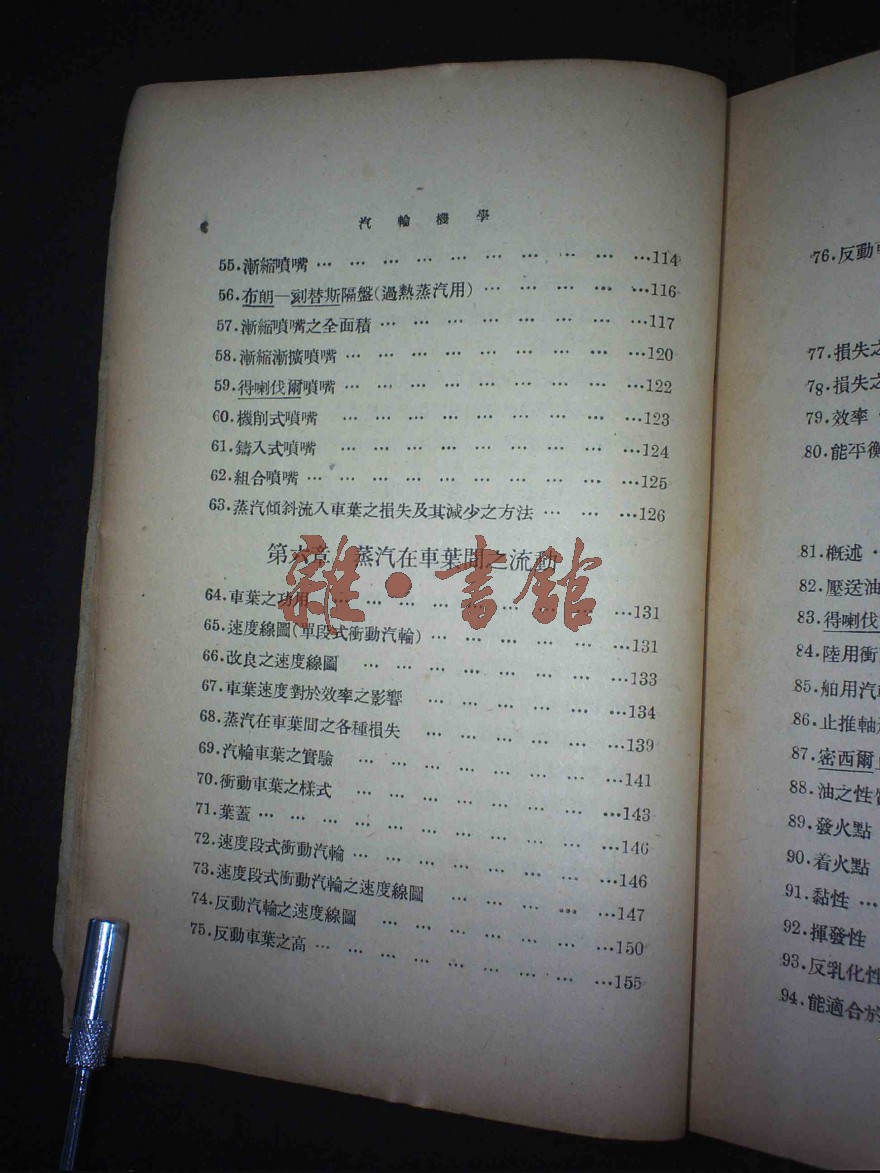 汽輪機學
55.漸縮噴嘴 … … … … … … … … … … …114
56.布朗—刻替斯隔盤(過熱蒸汽用) … … … … … …116
57.漸縮噴嘴之全面積 … … … … … … … … …117
58.漸縮漸擴噴嘴 … … … … … … … … … …120
59.得喇伐爾噴嘴 … … … … … … … … … …122
60.機削式噴嘴 … … … … … … … … … …123
61.鑄入式噴嘴 … … … … … … … … … …124
62.組合噴嘴 … … … … … … … … … … …125
63.蒸汽傾斜流入車葉之損失及其減少之方法 … … … …126
第六章 蒸汽在車葉間之流動
64.車葉之功用 … … … … … … … … … …131
65.速度線圖(單段式衝動汽輪) … … … … … … …131
66.改良之速度線圖 … … … … … … … … …133
67.車葉速度對於效率之影響 … … … … … … …134
68.蒸汽在車葉間之各種損失 … … … … … … …139
69.汽輪車葉之實驗 … … … … … … … … …141
70.衝動車葉之樣式 … … … … … … … … …143
71.葉蓋 … … … … … … … … … … … …146
72.速度段式衝動汽輪 … … … … … … … … …146
73.速度段式衝動汽輪之速度線圖 … … … … … …147
74.反動汽輪之速度線圖 … … … … … … … …150
75.反動車葉之高 … … … … … … … … … …155
76.反動
77.損失之
78.損失之
79.效率
80.能平衡
81.概述
82.壓送油
83.得喇伐
84.陸用衝
85.舶用汽
86.止推軸
87.密西爾
88.油之性
89.發火點
90.着火點
91.黏性 …
92.揮發性
93.反乳化性
94.能適合於
雜·書館